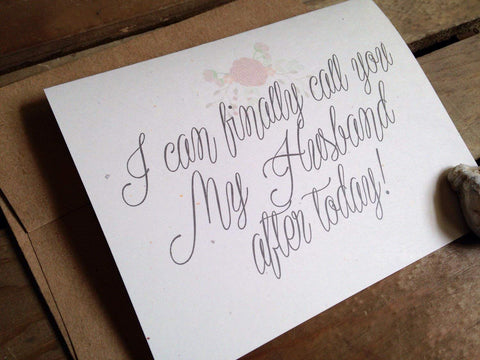 I can finally call you
My Husband
after today!